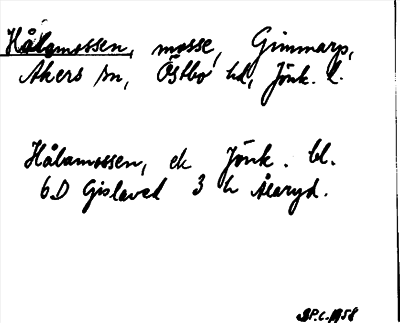 Hålamossen, mosse, Gimmarp,
Åkers sn, Östbo hd, Jönk. l.
Hålamossen, ek Jönk. bl.
6D Gislaved 3 h Åtaryd.
1958